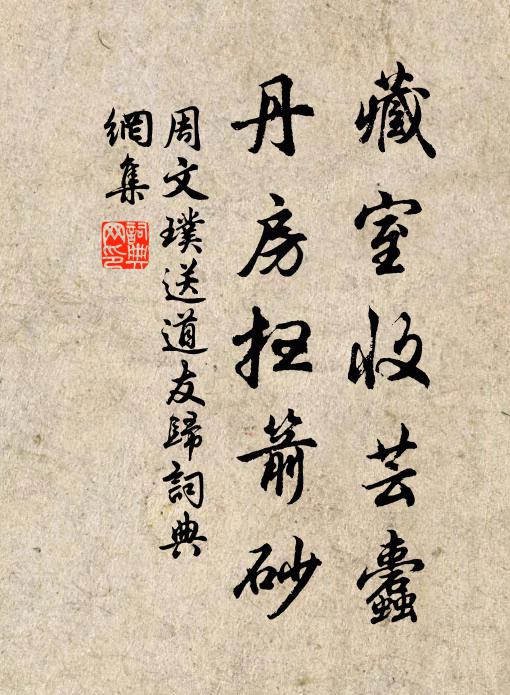 藏室收芸蠹
丹房扫箭砂
周文璞送道友歸詞典
網集
詞典
网印